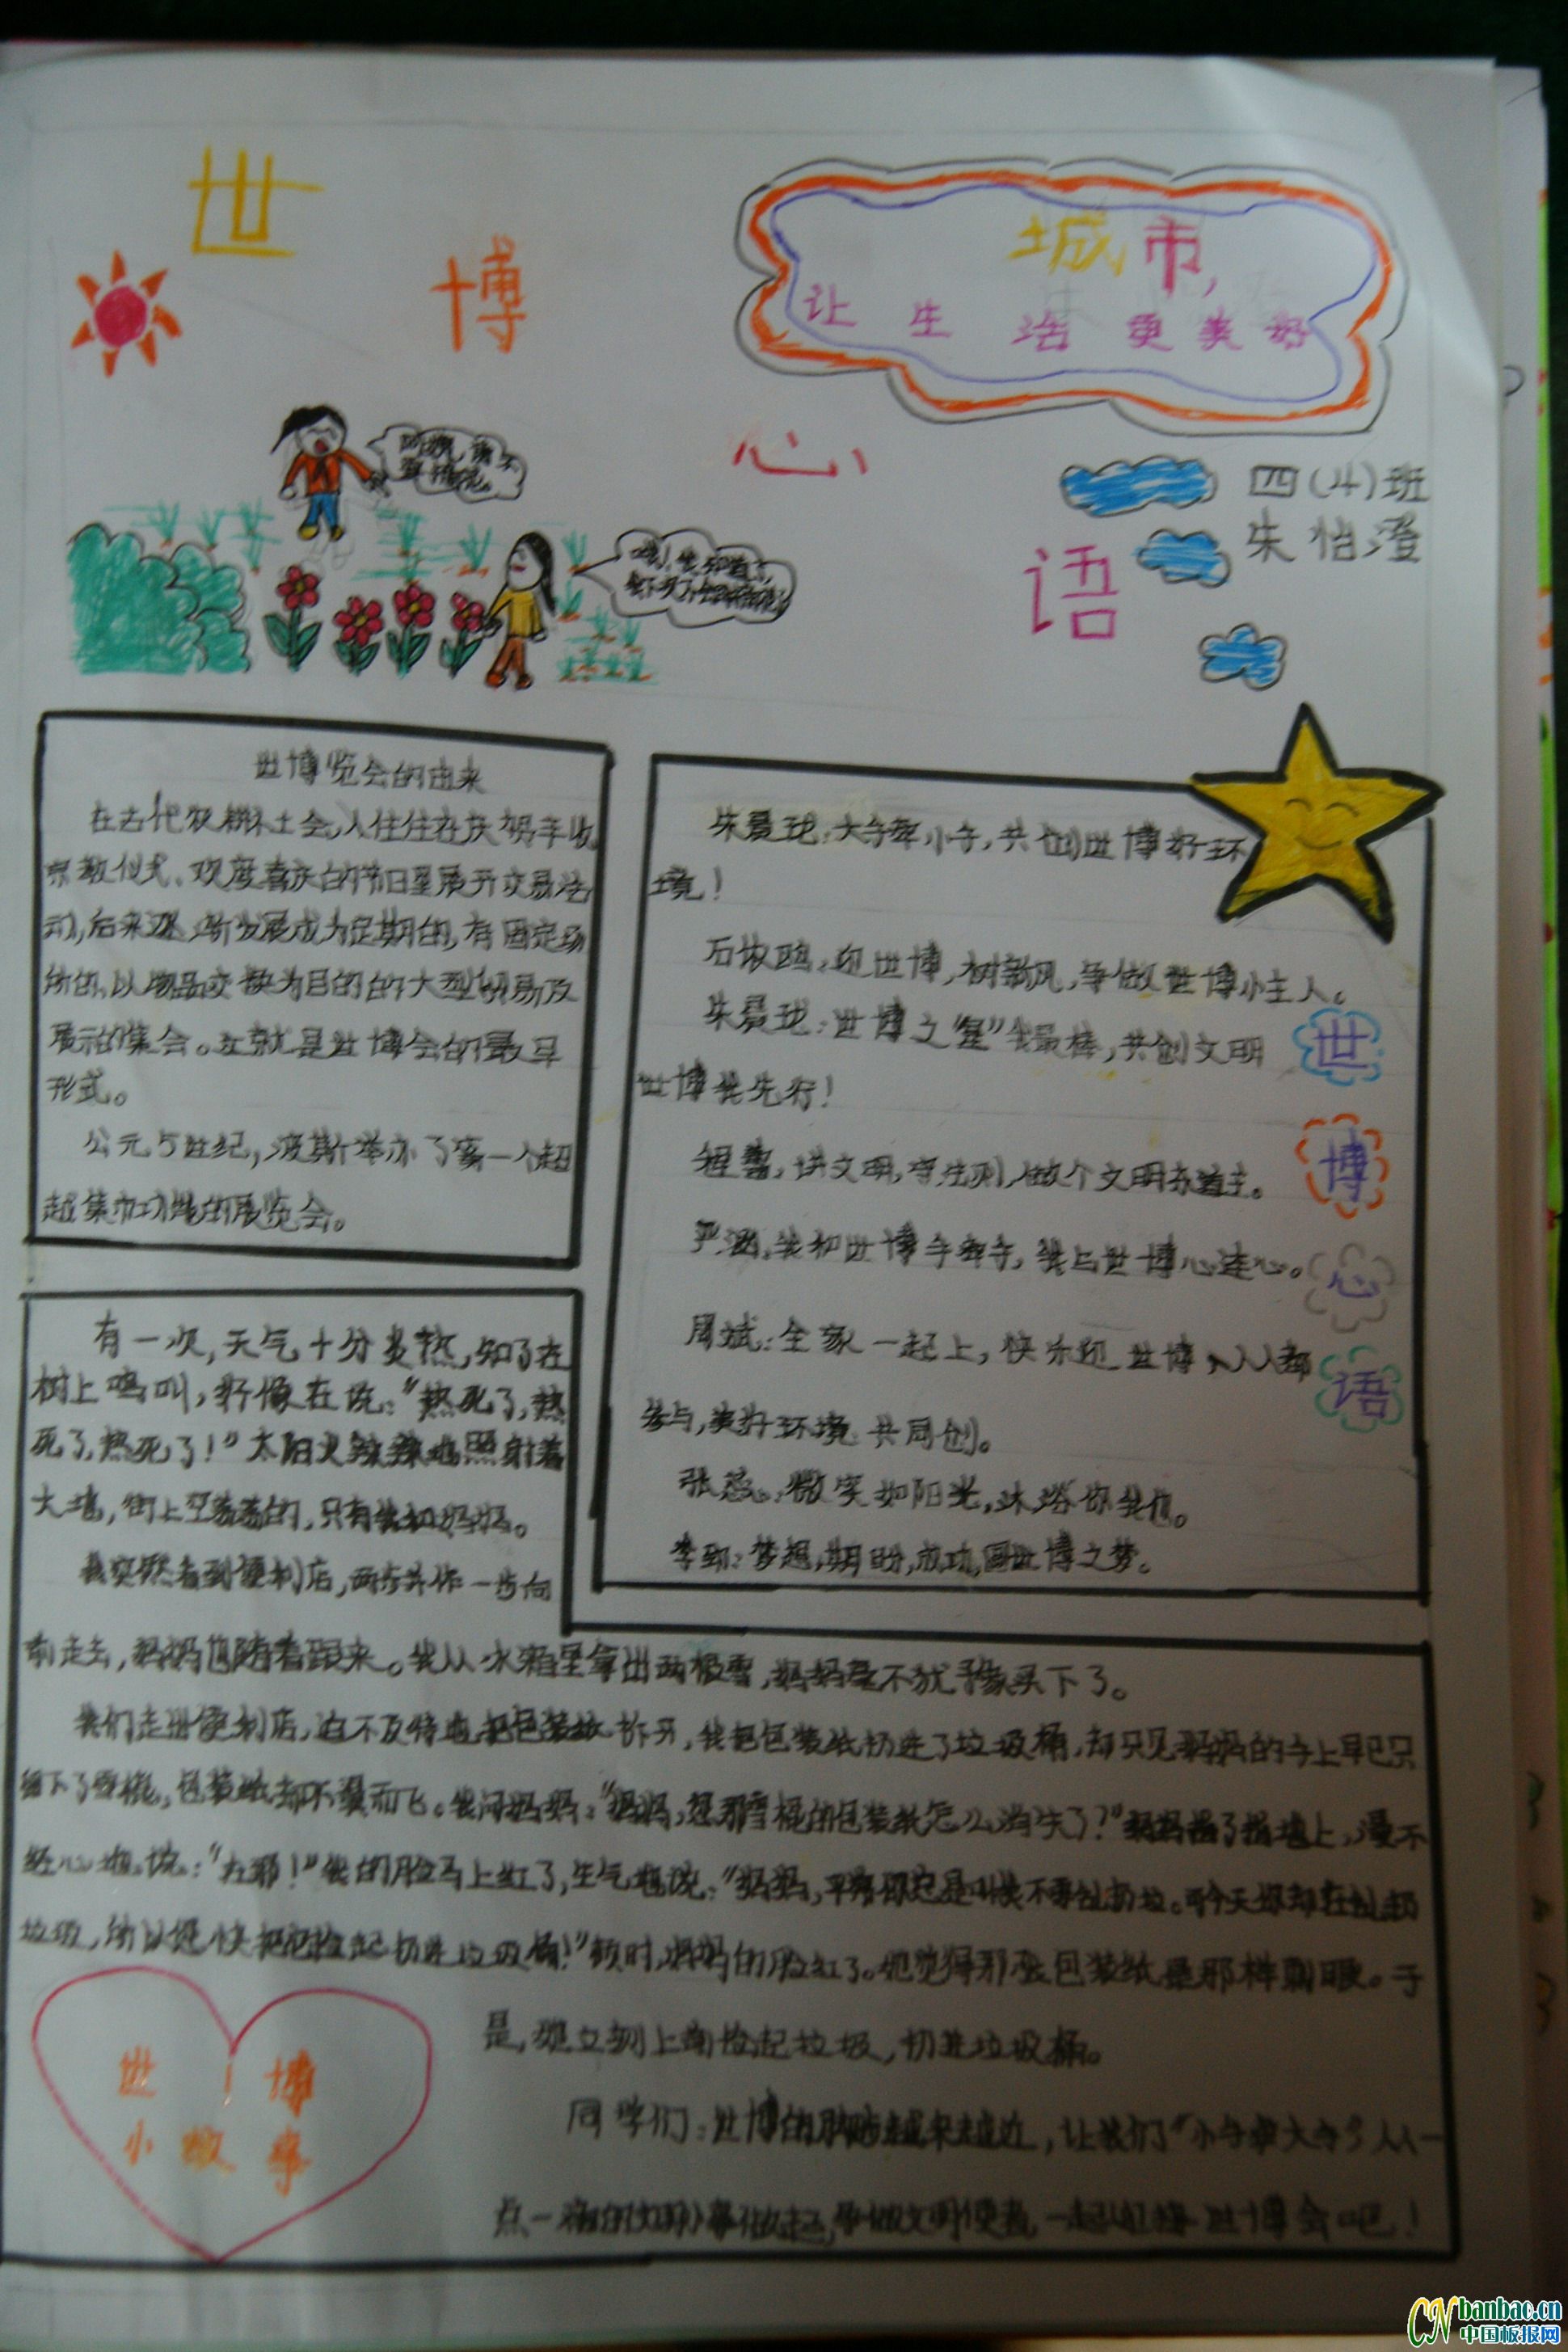 世
博
心
语
城市，
让生活更美好
四(4)班
朱怡澄
世博览会的由来
在古代农耕社会,人往往在庆祝丰收,
宗教仪式、欢度喜庆的节日里展开交易活
动,后来逐渐发展成为定期的,有固定场
所的,以物品交换为目的的大型贸易及
展示的集会。这就是世博会的最早
形式。
公元5世纪,波斯举办了第一个超
越集市功能的展览会。
大手牵小手,共创世博好环
境!
迎世博,树新风,争做世博小主人。
世博之"星"我最棒,共创文明
世博我先行!
讲文明,守法则,做个文明东道主。
我和世博手牵手,我与世博心连心。
周斌:全家一起上,快乐迎世博,人人都
参与,美好环境共同创。
微笑如阳光,沐浴你我他。
梦想,期盼,成功,圆世博之梦。
世
博
心
语
有一次,天气十分炎热,知了在
树上鸣叫,好像在说:"热死了,热
死了,热死了!"太阳火辣辣地照射着
大地,街上空荡荡的,只有我和妈妈。
我突然看到便利店,两步并作一步向
前走去,妈妈也随着跟来。我从冰箱里拿出两根雪,妈妈毫不犹豫买下了。
我们走进便利店,迫不及待地把包装纸拆开,我把包装纸扔进了垃圾桶,却只见妈妈的手上早已只
留下了雪棍,包装纸却不翼而飞。我问妈妈:"妈妈,您那雪棍的包装纸怎么消失了?"妈妈指了指地上,漫不
经心地说:"在那!"我的脸马上红了,生气地说:"妈妈,平常你总是叫我不要乱扔垃。可今天你却在乱扔
垃圾,所以赶快把它捡起扔进垃圾桶!"顿时,妈妈的脸红了。她觉得那张包装纸是那样刺眼。于
是,她立刻上前捡起垃圾,扔进垃圾桶。
同学们:世博的脚步越来越近,让我们"小手牵大手"从一
点一滴的文明小事做起,争做文明使者,一起迎接世博会吧!
世博
小故事
CN banbao.cn
中国板报网